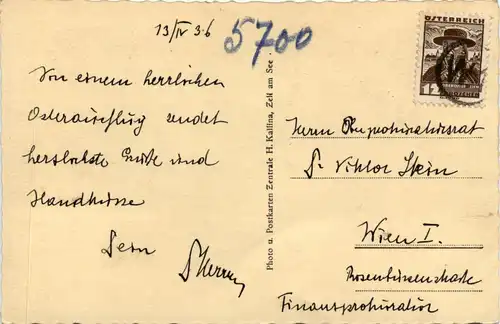 13/IV 36
5700
Von einem herrlichen
Osterausflug sendet
herzlichste Grüße und
Handküsse
ÖSTERREICH
12
Photo u. Postkarten Zentrale H. Kallina, Zell am See
Herrn Oberprokuratursrat
Dr Viktor Stein
Wien I.
Rosenbursenstraße
Finanzprokuratur